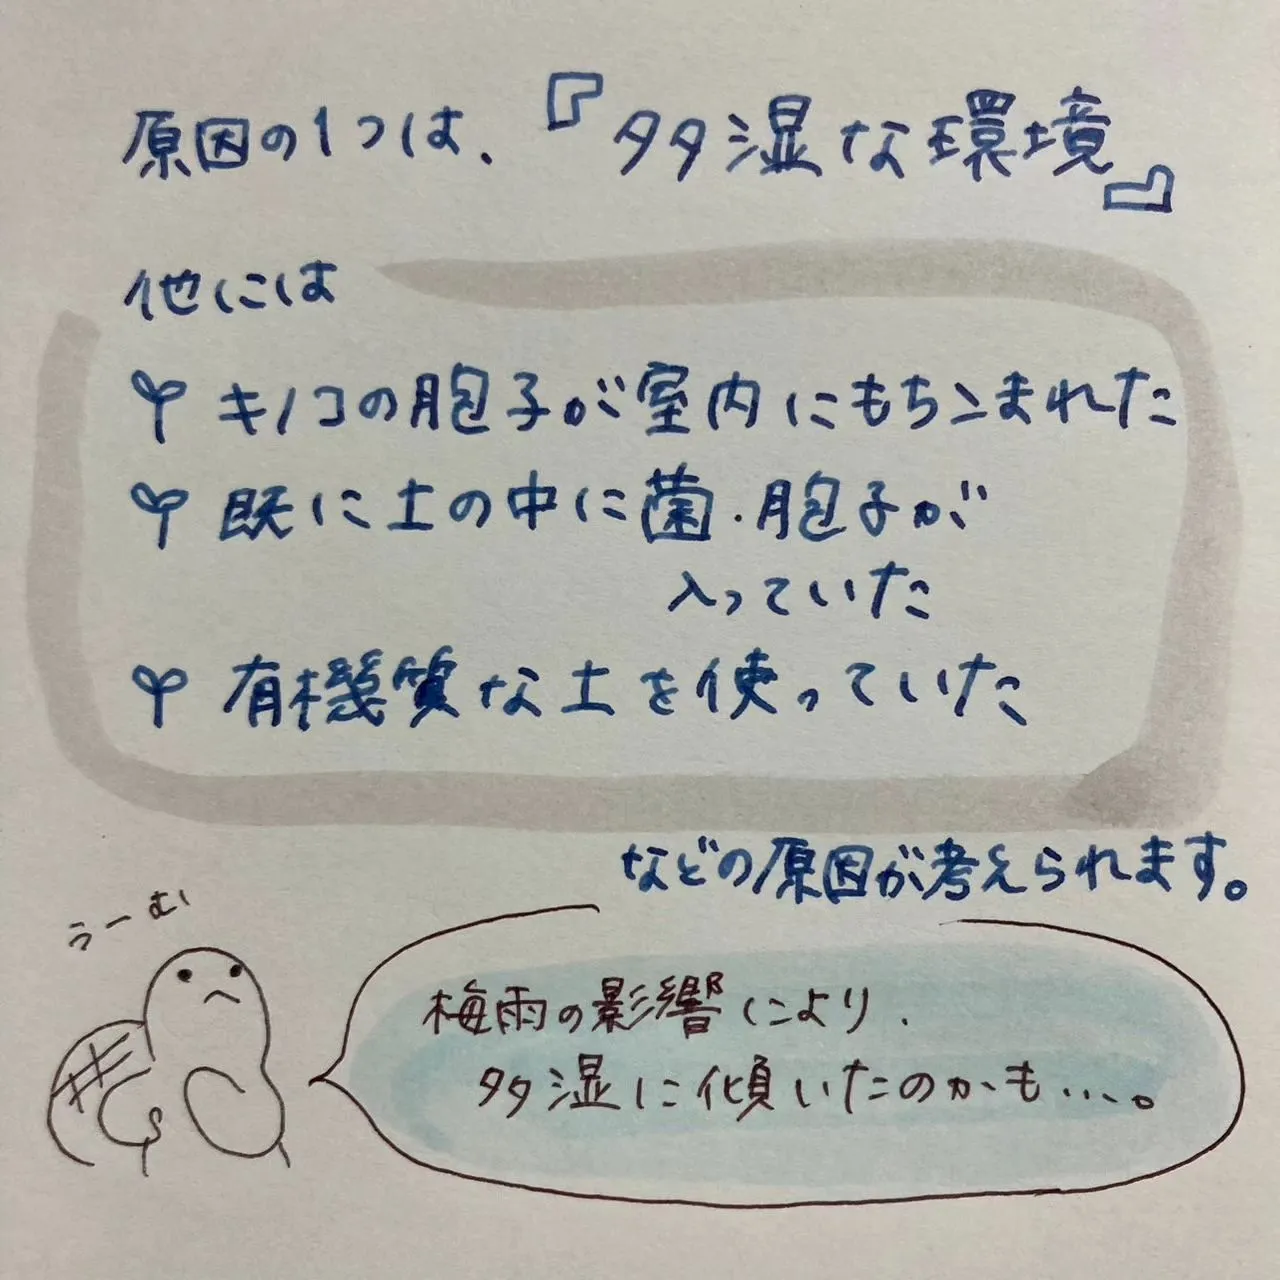 原因の1つは、『多湿な環境』
他には
キノコの胞子が室内にもちこまれた
既に土の中に菌・胞子が
入っていた
有機質な土を使っていた
などの原因が考えられます。
うーむ
梅雨の影響により、
多湿に傾いたのかも…。